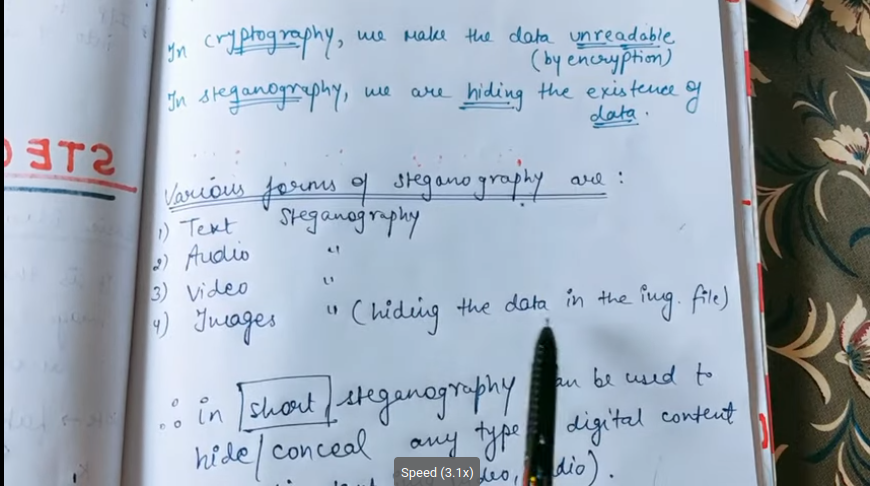 In cryptography, we make the data unreadable
(by encryption)
In steganography, we are hiding the existence of
data.
STE
Various forms of steganography are :
1) Text Steganography
2) Audio "
3) Video "
4) Images " (hiding the data in the img. file)
∴ in short steganography can be used to
hide/conceal any type digital content
Speed (3.1x)